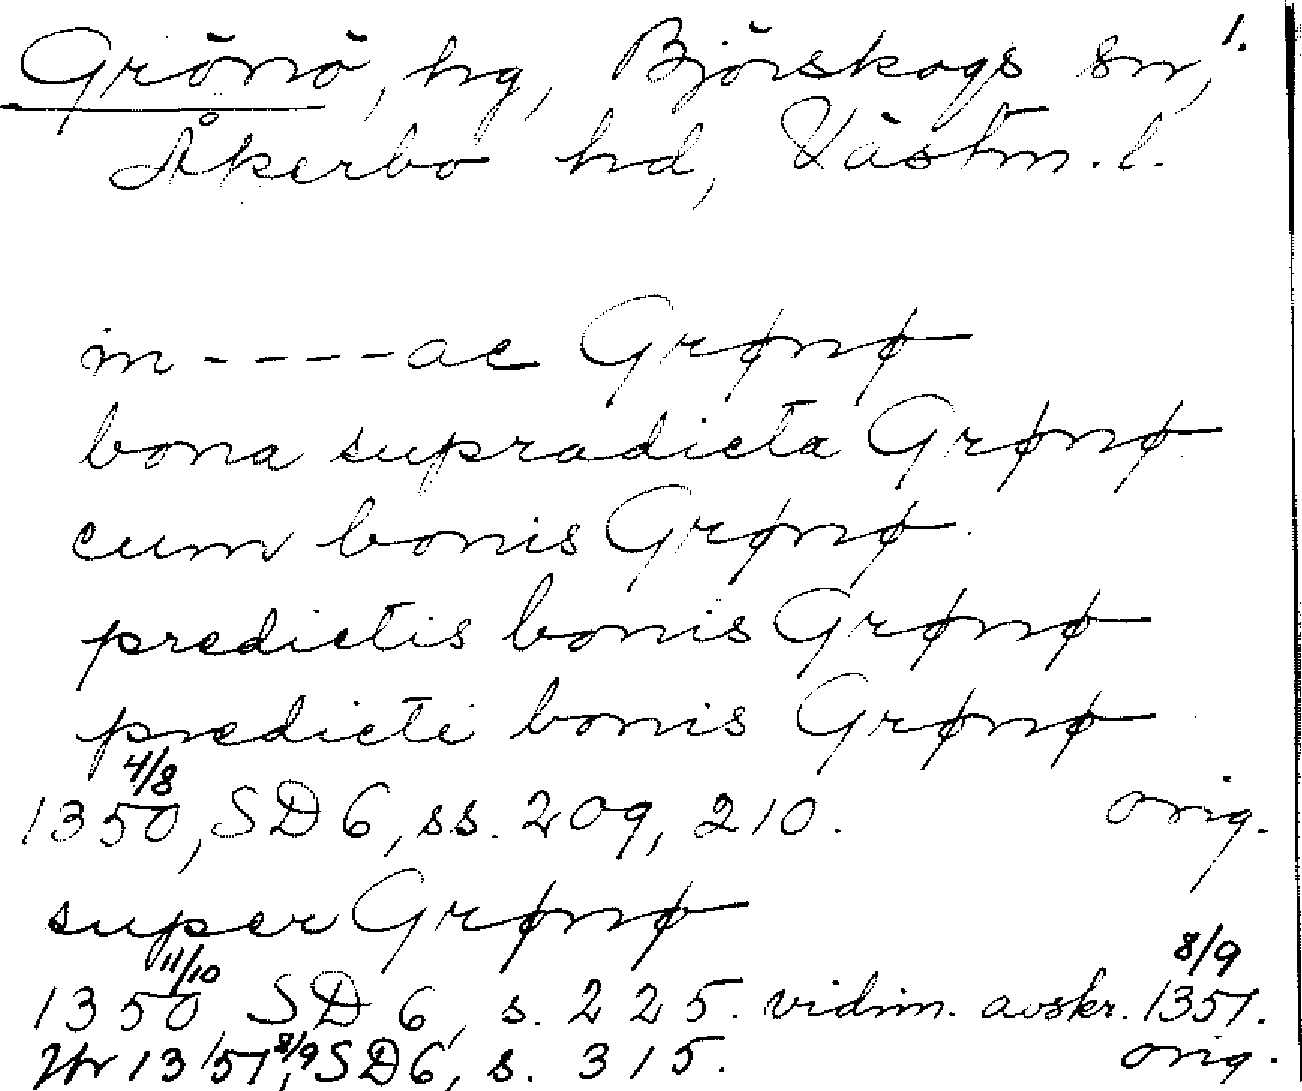 Grönö, hg, Björskogs sn, 1.
Åkerbo hd, Västm. l.
in ---- ac Grønø
bona supradicta Grønø
cum bonis Grønø
predictis bonis Grønø
predicti bonis Grønø
1350 4/8, SD 6, ss. 209, 210. orig.
super Grønø
1350 11/10, SD 6, s. 225. vidim. avskr. 1351 8/9.
1351 8/9, SD 6, s. 315. orig.